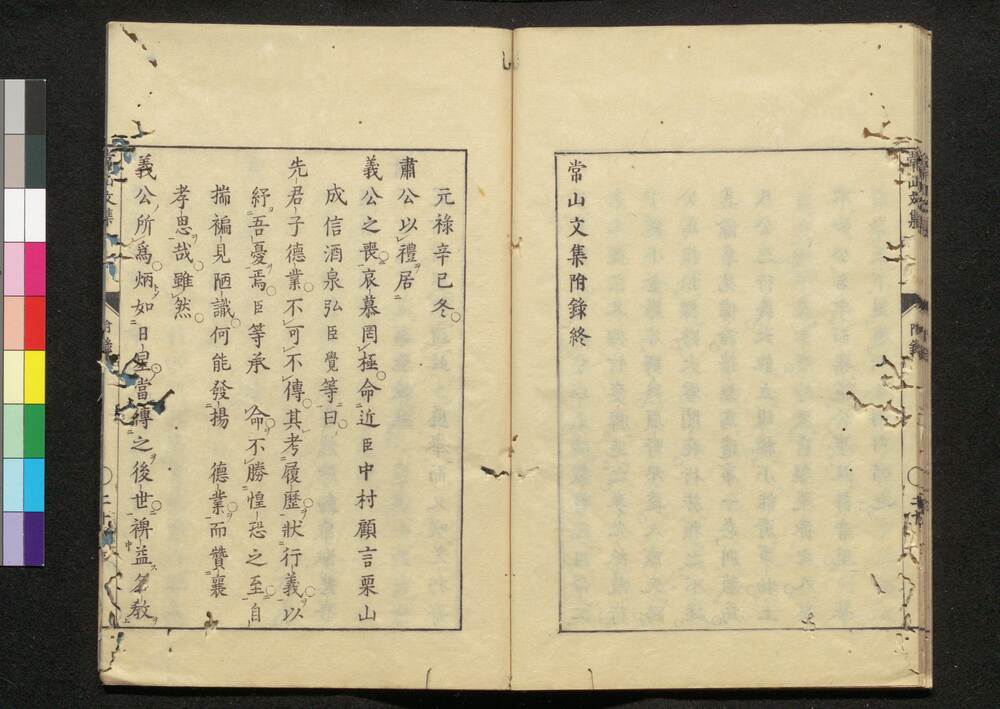 常山文集附錄終
元祿辛巳冬
肅公以禮居
義公之喪哀慕罔極命近臣中村顧言栗山
成信酒泉弘臣覺等曰
先君子德業不可不傳其考履歷狀行義以
紓吾憂焉臣等承 命不勝惶恐之至自
揣褊見陋識何能發揚 德業而贊襄
孝思哉雖然
義公所爲炳如日星當傳之後世裨益名教
常山文集
附錄